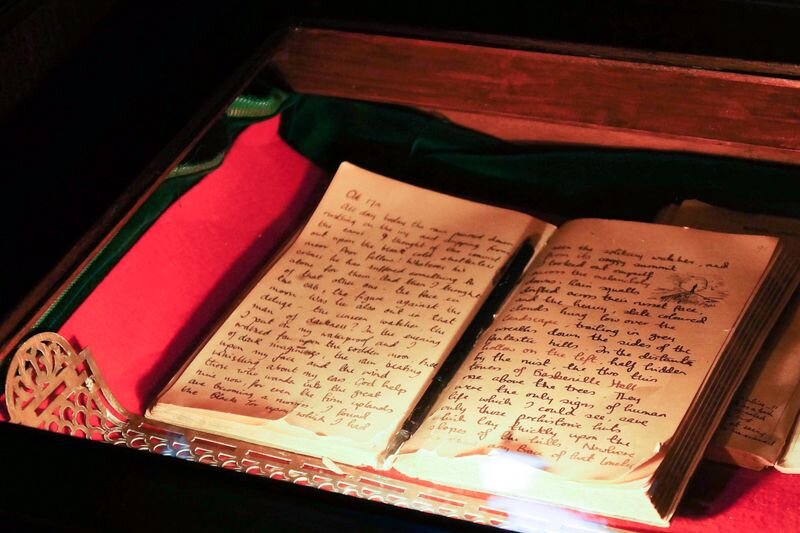 Oct 17th
All day today the rain poured down
rustling on the ivy and dripping from
the eaves. I thought of the convict
out upon the bleak cold shelterless
moor. Poor fellow. Whatever his
crimes he has suffered something to
atone for them. And then I thought
of that other one – the face in
the cab the figure against the
moon. Was he also out in that
deluge – the unseen watcher the
man of darkness? In the evening
I put on my waterproof and I walked
far upon the sodden moor, full
of dark imaginings, the rain beating
upon my face and the wind
whistling about my ears God help
those who wander into the great
mire now, for even the firm uplands
are becoming a morass. I found
the Black Tor upon which I had
seen the solitary watcher, and
from its craggy summit
I looked out myself
across the melancholy
downs. Rain squalls
drifted across their russet face,
and the heavy, slate coloured
clouds hung low over the
landscape, trailing in grey
wreaths down the sides of the
fantastic hills. In the distant
hollow on the left, half hidden
by the mist, the two thin
towers of Baskerville Hall
rose above the trees. They
were the only signs of human
life which I could see, save
only those prehistoric huts
which lay thickly upon the
slopes of the hills. Nowhere
any trace of that lonely